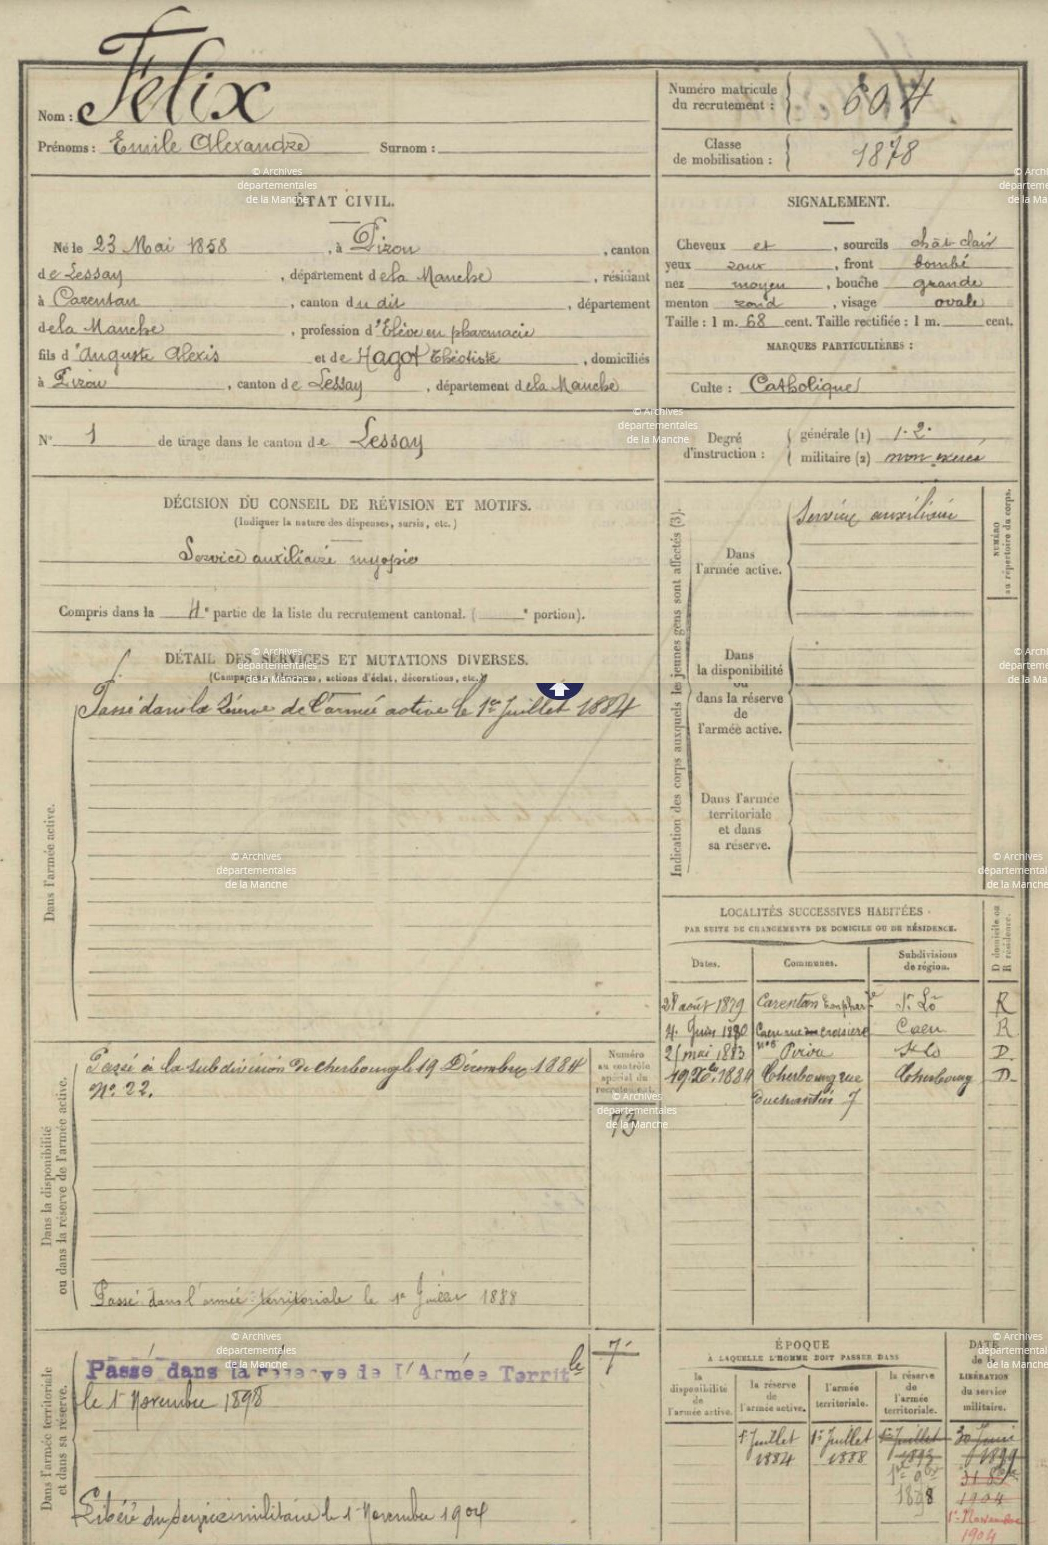 Nom : Felix
Prénoms : Emile Alexandre Surnom :
Numéro matricule du recrutement : 604
Classe de mobilisation : 1878
ÉTAT CIVIL.
Né le 23 Mai 1858, à Pirou, canton
de Lessay, département de la Manche, résidant
à Carentan, canton du dit, département
de la Manche, profession d'Elève en pharmacie
fils d'Auguste Alexis et de Hagot Théotiste, domiciliés
à Pirou, canton de Lessay, département de la Manche
N° 1 de tirage dans le canton de Lessay
SIGNALEMENT.
Cheveux et, sourcils chât clair
yeux roux, front bombé
nez moyen, bouche grande
menton rond, visage ovale
Taille : 1 m. 68 cent. Taille rectifiée : 1 m. cent.
MARQUES PARTICULIÈRES :
Culte : Catholique
Degré d'instruction :
générale (1) 1.2.
militaire (2) non exercé
DÉCISION DU CONSEIL DE RÉVISION ET MOTIFS.
(Indiquer la nature des dispenses, sursis, etc.)
Service auxiliaire myopie
Compris dans la 4e partie de la liste du recrutement cantonal. ( e portion).
DÉTAIL DES SERVICES ET MUTATIONS DIVERSES.
(Campagnes, blessures, actions d'éclat, décorations, etc.)
Dans l'armée active.
Passé dans la réserve de l'armée active le 1er Juillet 1884
Indication des corps auxquels les jeunes gens sont affectés (3).
Dans l'armée active.
Service auxiliaire
NUMÉRO au répertoire du corps.
Dans la disponibilité
ou
dans la réserve
de
l'armée active.
Dans l'armée
territoriale
et dans
sa réserve.
LOCALITÉS SUCCESSIVES HABITÉES
PAR SUITE DE CHANGEMENTS DE DOMICILE OU DE RÉSIDENCE.
Dates. Communes. Subdivisions de région. D domicile ou R résidence.
28 août 1879 Carentan St Lô R
4. Juin 1880 Caen rue croisière Caen R
n°6
21 mai 1883 Pirou St Lo D.
19 Xbre 1884 Cherbourg rue Cherbourg D.
Duchantier 7
Dans la disponibilité
ou dans la réserve de l'armée active.
Passé à la subdivision de Cherbourg le 19 Décembre 1884
N°. 22.
Numéro
au contrôle
spécial du
recrutement.
73
Passé dans l'armée territoriale le 1er Juillet 1888
7
Dans l'armée territoriale
et dans sa réserve.
Passé dans la réserve de l'Armée Territle
le 1er Novembre 1898
Libéré du service militaire le 1er Novembre 1904
ÉPOQUE
À LAQUELLE L'HOMME DOIT PASSER DANS
la disponibilité de l'armée active.
la réserve de l'armée active.
l'armée territoriale.
la réserve de l'armée territoriale.
DATE
de la
LIBÉRATION
du service
militaire.
1er Juillet 1884
1er Juillet 1888
1er Juillet 1893
1er 9bre 1898
30 Juin 1899
31 8bre 1904
1er Novembre 1904
© Archives
départementales
de la Manche